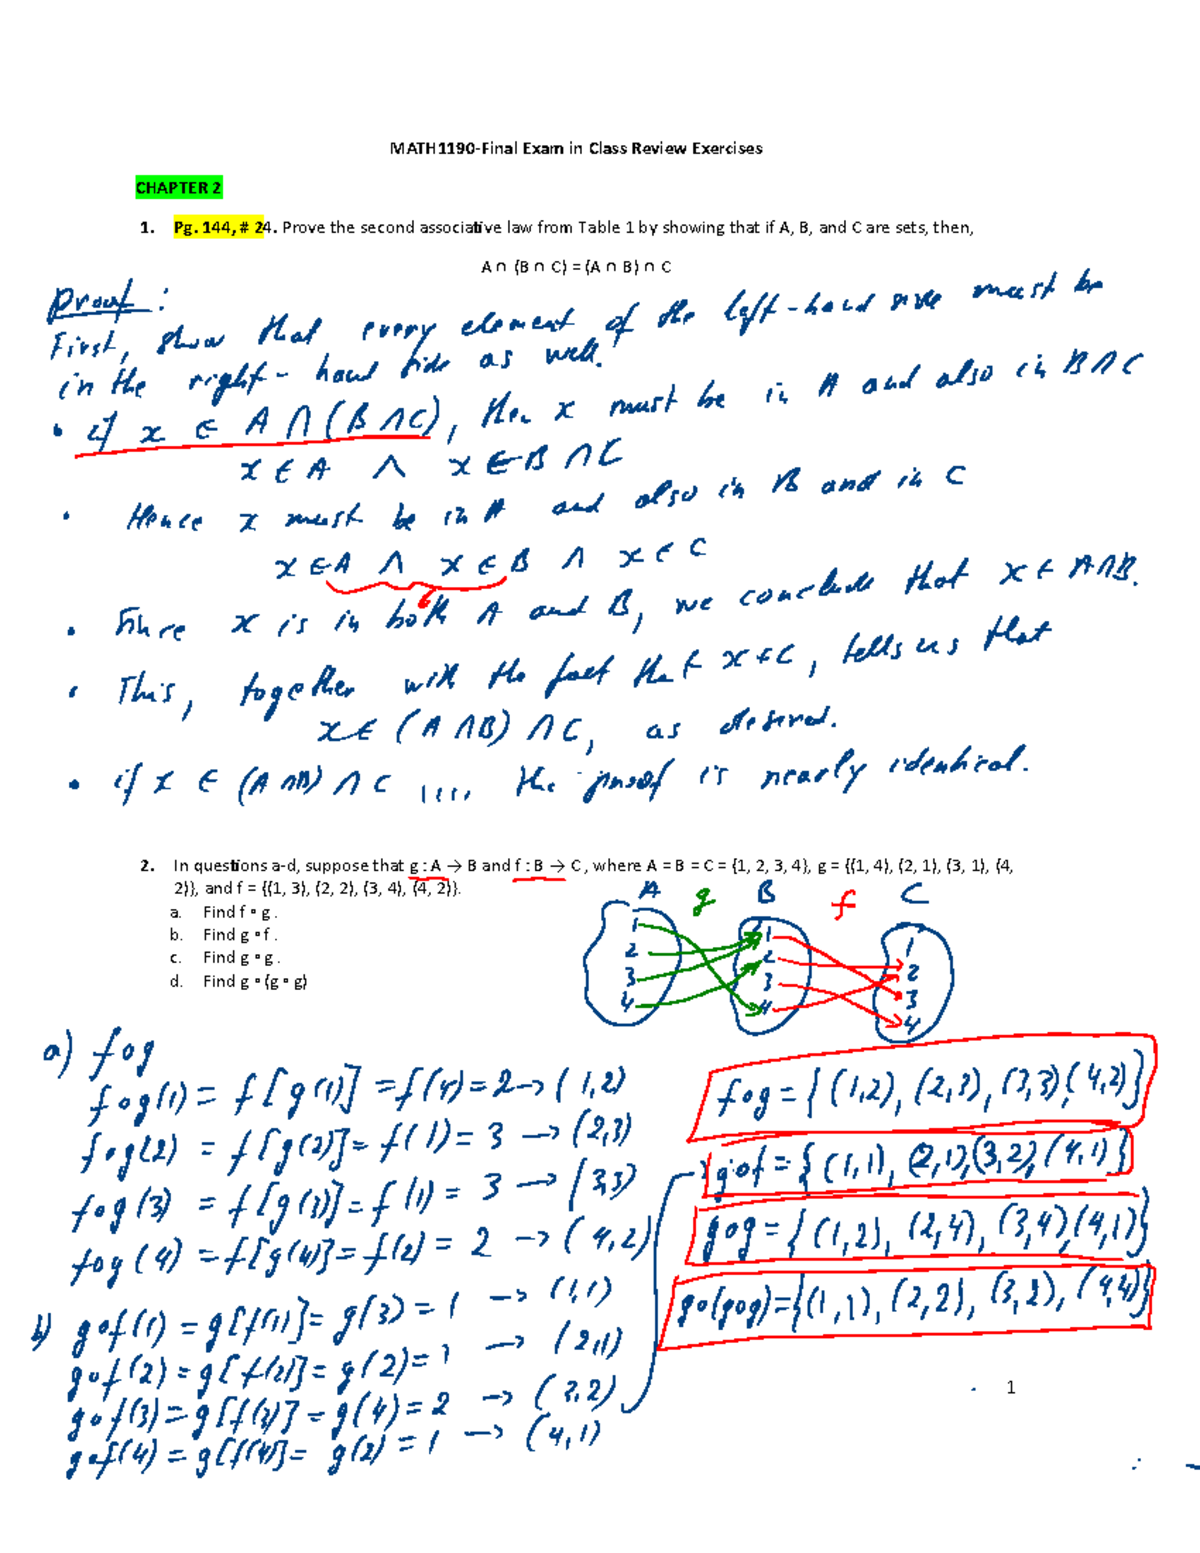 MATH1190-Final Exam in Class Review Exercises
CHAPTER 2
1. Pg. 144, # 24. Prove the second associative law from Table 1 by showing that if A, B, and C are sets, then,
A ∩ (B ∩ C) = (A ∩ B) ∩ C
Proof:
First, show that every element of the left-hand side must be
in the right-hand side as well.
• if x ∈ A ∩ (B ∩ C), then x must be in A and also in B ∩ C
x ∈ A ∧ x ∈ B ∩ C
• Hence x must be in A and also in B and in C
x ∈ A ∧ x ∈ B ∧ x ∈ C
• Since x is in both A and B, we conclude that x ∈ A ∩ B.
• This, together with the fact that x ∈ C, tells us that
x ∈ (A ∩ B) ∩ C, as desired.
• if x ∈ (A ∩ B) ∩ C .... the proof is nearly identical.
2. In questions a-d, suppose that g : A → B and f : B → C, where A = B = C = {1, 2, 3, 4}, g = {(1, 4), (2, 1), (3, 1), (4,
2)}, and f = {(1, 3), (2, 2), (3, 4), (4, 2)}.
a. Find f ∘ g .
b. Find g ∘ f .
c. Find g ∘ g .
d. Find g ∘ (g ∘ g)
A g B f C
1 1 1
2 2 2
3 3 3
4 4 4
a) fog
fog(1) = f[g(1)] = f(4) = 2 → (1,2)
fog(2) = f[g(2)] = f(1) = 3 → (2,3)
fog(3) = f[g(3)] = f(1) = 3 → (3,3)
fog(4) = f[g(4)] = f(2) = 2 → (4,2)
b) gof(1) = g[f(1)] = g(3) = 1 → (1,1)
gof(2) = g[f(2)] = g(2) = 1 → (2,1)
gof(3) = g[f(3)] = g(4) = 2 → (3,2)
gof(4) = g[f(4)] = g(2) = 1 → (4,1)
fog = {(1,2), (2,3), (3,3), (4,2)}
gof = {(1,1), (2,1), (3,2), (4,1)}
gog = {(1,2), (2,4), (3,4), (4,1)}
go(gog) = {(1,1), (2,2), (3,2), (4,4)}
1